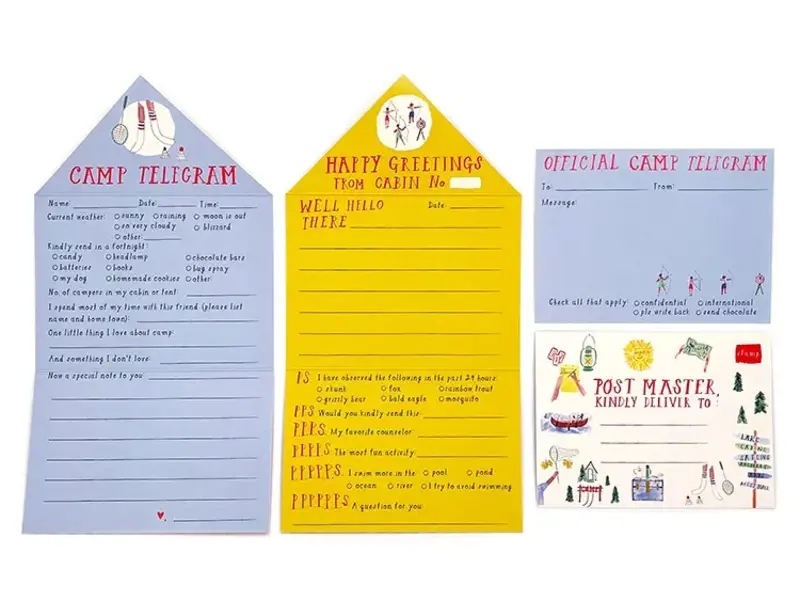 CAMP TELEGRAM
Name: Date: Time:
Current weather: sunny raining moon is out
so very cloudy blizzard
other:
Kindly send in a fortnight:
candy headlamp chocolate bars
batteries books bug spray
my dog homemade cookies other:
No. of campers in my cabin or tent:
I spend most of my time with this friend (please list
name and home town):
One little thing I love about camp:
And something I don't love:
Now a special note to you:
HAPPY GREETINGS
FROM CABIN No
WELL HELLO Date:
THERE
PS I have observed the following in the past 24 hours:
skunk fox rainbow trout
grizzly bear bald eagle mosquito
PPS Would you kindly send this:
PPPS. My favorite counselor:
PPPPS The most fun activity:
PPPPPS. I swim more in the: pool pond
ocean river I try to avoid swimming
PPPPPPS A question for you:
OFFICIAL CAMP TELEGRAM
To: From:
Message:
Check all that apply: confidential international
plz write back send chocolate
stamp
POST MASTER,
KINDLY DELIVER TO:
LAKE
CAMP